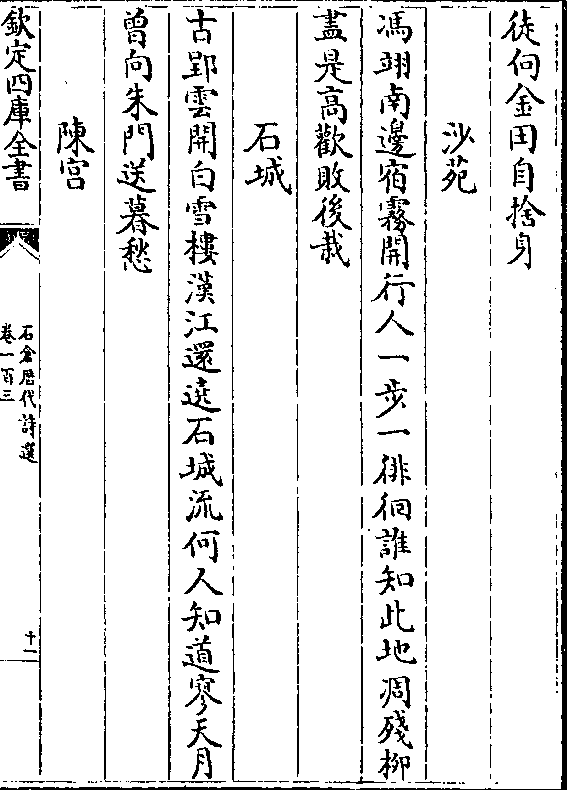 徒何金田自捨身
沙苑
馮翊南邊宿霧開行人一步一徘徊誰知此地凋殘柳
盡是高歡敗後栽
石城
古郢雲開白雪樓漢江還遶石城流何人知道寥天月
曾向朱門送暮愁
陳宮
欽定四庫全書
石倉歴代詩選
卷一百三
十一